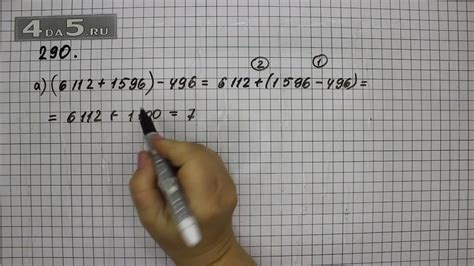 4DA5.RU
290.
② ①
а) (6 112 + 1596) - 496 = 6 112 + (1 596 - 496) =
= 6 112 + 1 100 = 7